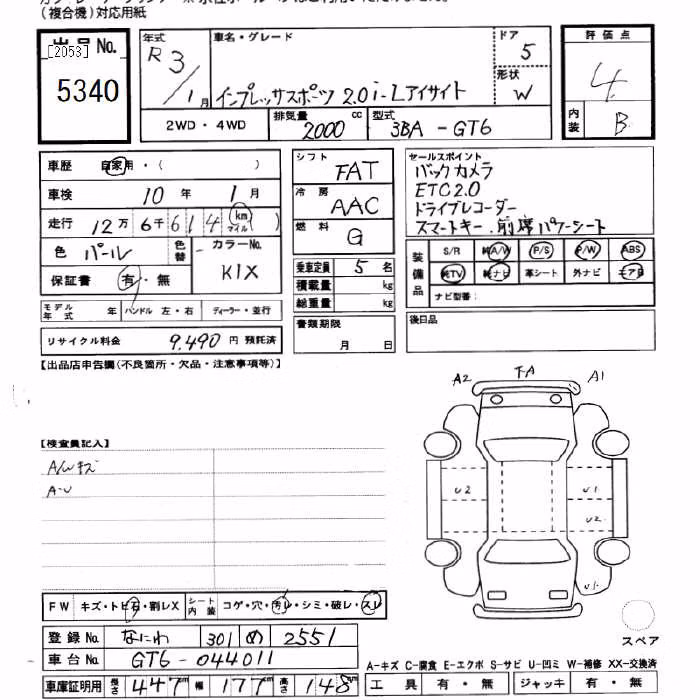 (複合機)対応用紙
出品 No.
[2053]
5340
年式
R3/1月
車名・グレード
インプレッサスポーツ 2.0i-Lアイサイト
ドア
5
形状
W
評価点
4
内装
B
2WD・4WD
排気量
2000 cc
型式
3BA-GT6
車歴 自家用・( )
車検 10年 1月
走行 12万6千614 (km マイル)
色 パール
色替
カラーNo.
K1X
保証書 有・無
モデル年式 年 ハンドル 左・右 ディーラー・並行
リサイクル料金 9,490円 預託済
シフト
FAT
冷房
AAC
燃料
G
乗車定員 5名
積載量 kg
総重量 kg
書類期限
月 日
セールスポイント
バックカメラ
ETC2.0
ドライブレコーダー
スマートキー.前席パワーシート
装備品
S/R 純A/W P/S P/W ABS
純TV 純ナビ 革シート 外ナビ エアB
ナビ型番:
後日品
【出品店申告欄(不良箇所・欠品・注意事項等)】
【検査員記入】
A/Wキズ
A-U
A2 T-A A1
U2 U1
U2
U1
スペア
FW キズ・トビ石・割レX
シート内装 コゲ・穴・汚レ・シミ・破レ・スレ
登録 No. なにわ 301 め 2551
車台 No. GT6-044011
車庫証明用 長さ 447cm 幅 177cm 高さ 148cm
A-キズ C-腐食 E-エクボ S-サビ U-凹ミ W-補修 XX-交換済
工具 有・無 ジャッキ 有・無